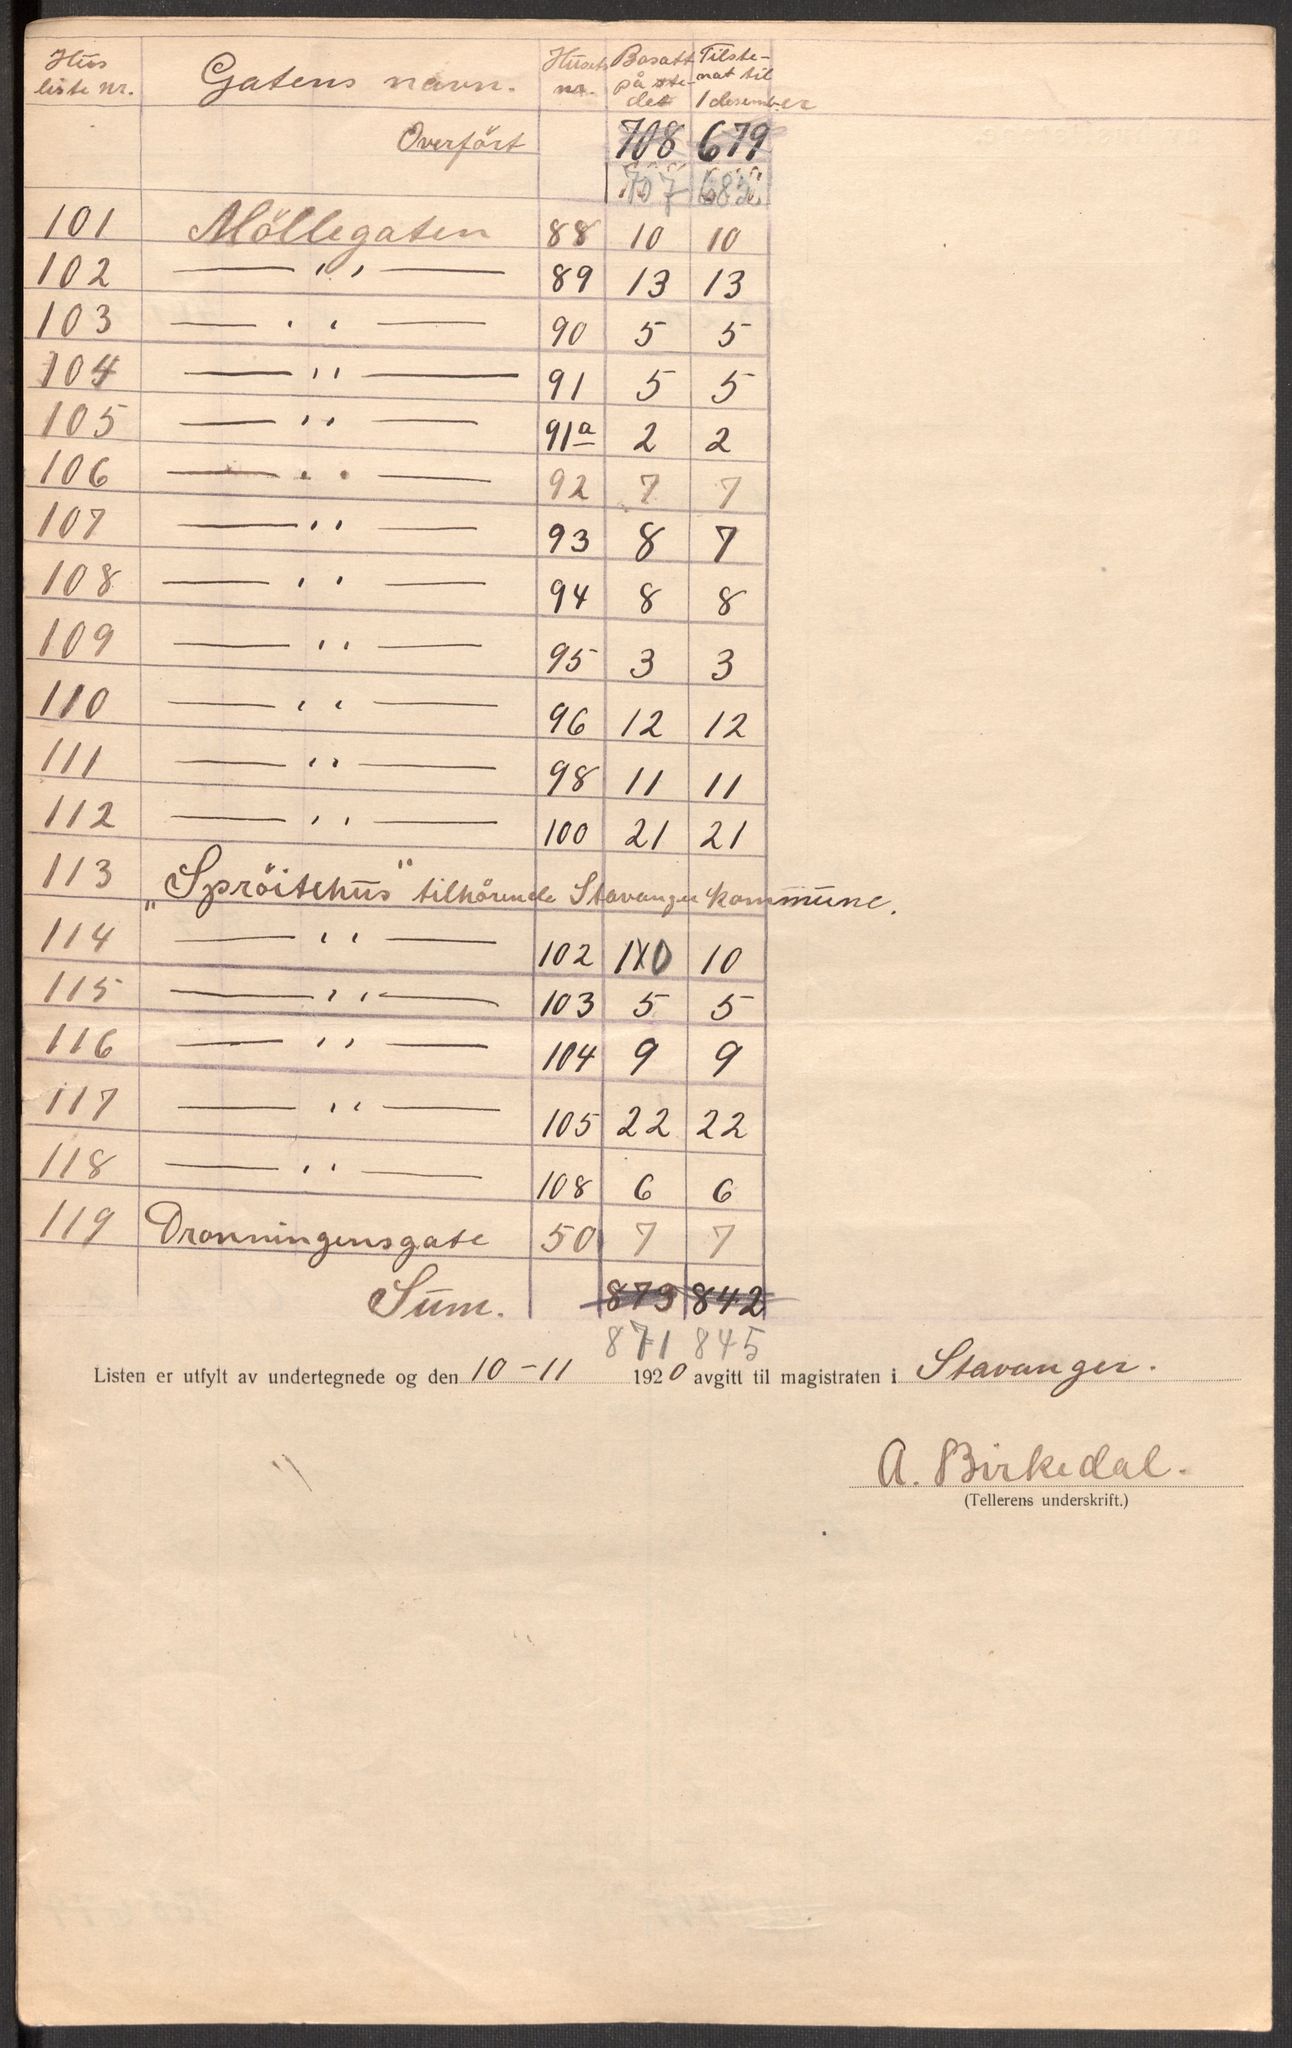 Hus liste nr. Gatens navn. Husets nr. Bosatt på stedet Tilstede-nat til 1 desember
Overført 708 679
707 682
101 Möllegaten 88 10 10
102 — " — 89 13 13
103 — " — 90 5 5
104 — " — 91 5 5
105 — " — 91a 2 2
106 — " — 92 7 7
107 — " — 93 8 7
108 — " — 94 8 8
109 — " — 95 3 3
110 — " — 96 12 12
111 — " — 98 11 11
112 — " — 100 21 21
113 „Spröitehus" tilhörende Stavanger kommune.
114 — " — 102 10 10
115 — " — 103 5 5
116 — " — 104 9 9
117 — " — 105 22 22
118 — " — 108 6 6
119 Dronningensgate 50 7 7
Sum. 873 842
871 845
Listen er utfylt av undertegnede og den 10-11 1920 avgitt til magistraten i Stavanger.
A. Birkedal.
(Tellerens underskrift.)